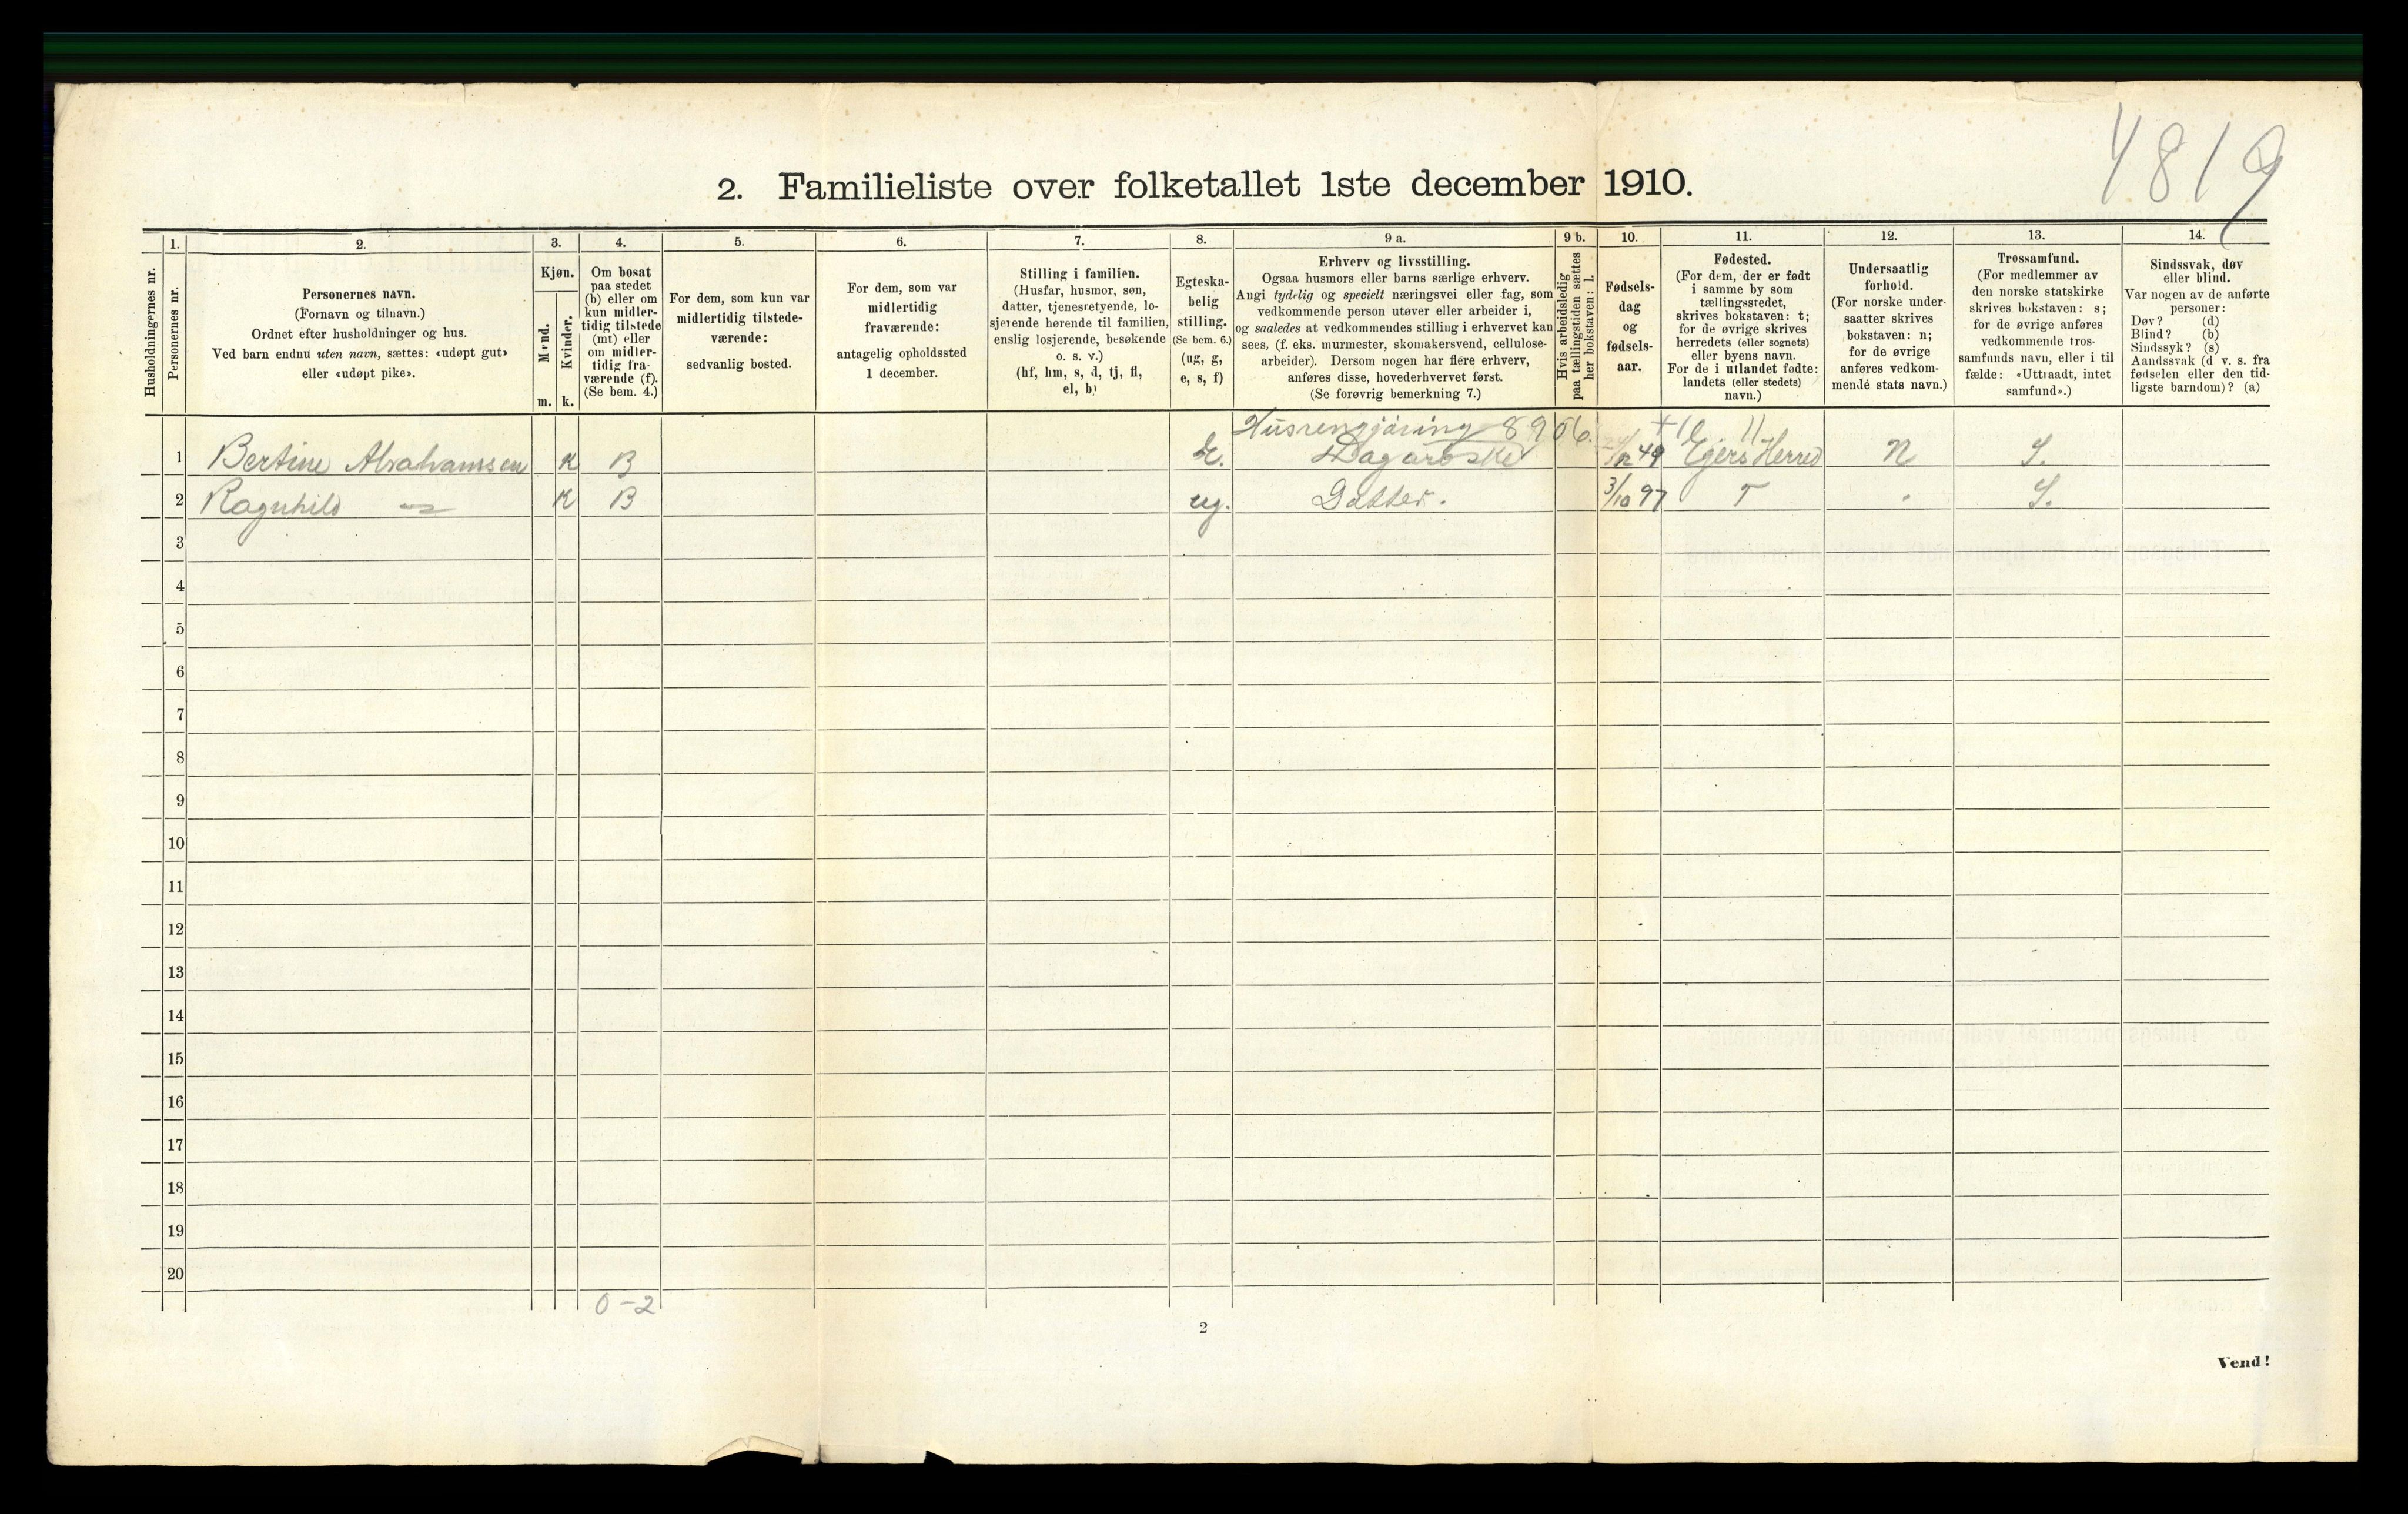 4819
2. Familieliste over folketallet 1ste december 1910.
1. 2. 3. 4. 5. 6. 7. 8. 9 a. 9 b. 10. 11. 12. 13. 14.
Husholdningernes nr.
Personernes nr.
Personernes navn.
(Fornavn og tilnavn.)
Ordnet efter husholdninger og hus.
Ved barn endnu uten navn, sættes: «udøpt gut»
eller «udøpt pike».
Kjøn.
Mænd.
Kvinder.
m. k.
Om bosat
paa stedet
(b) eller om
kun midler-
tidig tilstede
(mt) eller
om midler-
tidig fra-
værende (f).
(Se bem. 4.)
For dem, som kun var
midlertidig tilstede-
værende:
sedvanlig bosted.
For dem, som var
midlertidig
fraværende:
antagelig opholdssted
1 december.
Stilling i familien.
(Husfar, husmor, søn,
datter, tjenestetyende, lo-
sjerende hørende til familien,
enslig losjerende, besøkende
o. s. v.)
(hf, hm, s, d, tj, fl,
el, b)
Egteska-
belig
stilling.
(Se bem. 6.)
(ug, g,
e, s, f)
Erhverv og livsstilling.
Ogsaa husmors eller barns særlige erhverv.
Angi tydelig og specielt næringsvei eller fag, som
vedkommende person utøver eller arbeider i,
og saaledes at vedkommendes stilling i erhvervet kan
sees, (f. eks. murmester, skomakersvend, cellulose-
arbeider). Dersom nogen har flere erhverv,
anføres disse, hovederhvervet først.
(Se forøvrig bemerkning 7.)
Hvis arbeidsledig
paa tællingstiden sættes
her bokstaven: l.
Fødsels-
dag
og
fødsels-
aar.
Fødested.
(For dem, der er født
i samme by som
tællingsstedet,
skrives bokstaven: t;
for de øvrige skrives
herredets (eller sognets)
eller byens navn.
For de i utlandet fødte:
landets (eller stedets)
navn.)
Undersaatlig
forhold.
(For norske under-
saatter skrives
bokstaven: n;
for de øvrige
anføres vedkom-
mende stats navn.)
Trossamfund.
(For medlemmer av
den norske statskirke
skrives bokstaven: s;
for de øvrige anføres
vedkommende tros-
samfunds navn, eller i til
fælde: «Uttraadt, intet
samfund».)
Sindssvak, døv
eller blind.
Var nogen av de anførte
personer:
Døv? (d)
Blind? (b)
Sindssyk? (s)
Aandssvak (d v. s. fra
fødselen eller den tid-
ligste barndom)? (a)
Husrengjøring 8906.
1 Bertine Abrahamsen K B E. 49 Egers Herred N S.
2 Ragnhild K B ug. Datter. 3/10 97 T S.
3
4
5
6
7
8
9
10
11
12
13
14
15
16
17
18
19
20
0-2
2
Vend!